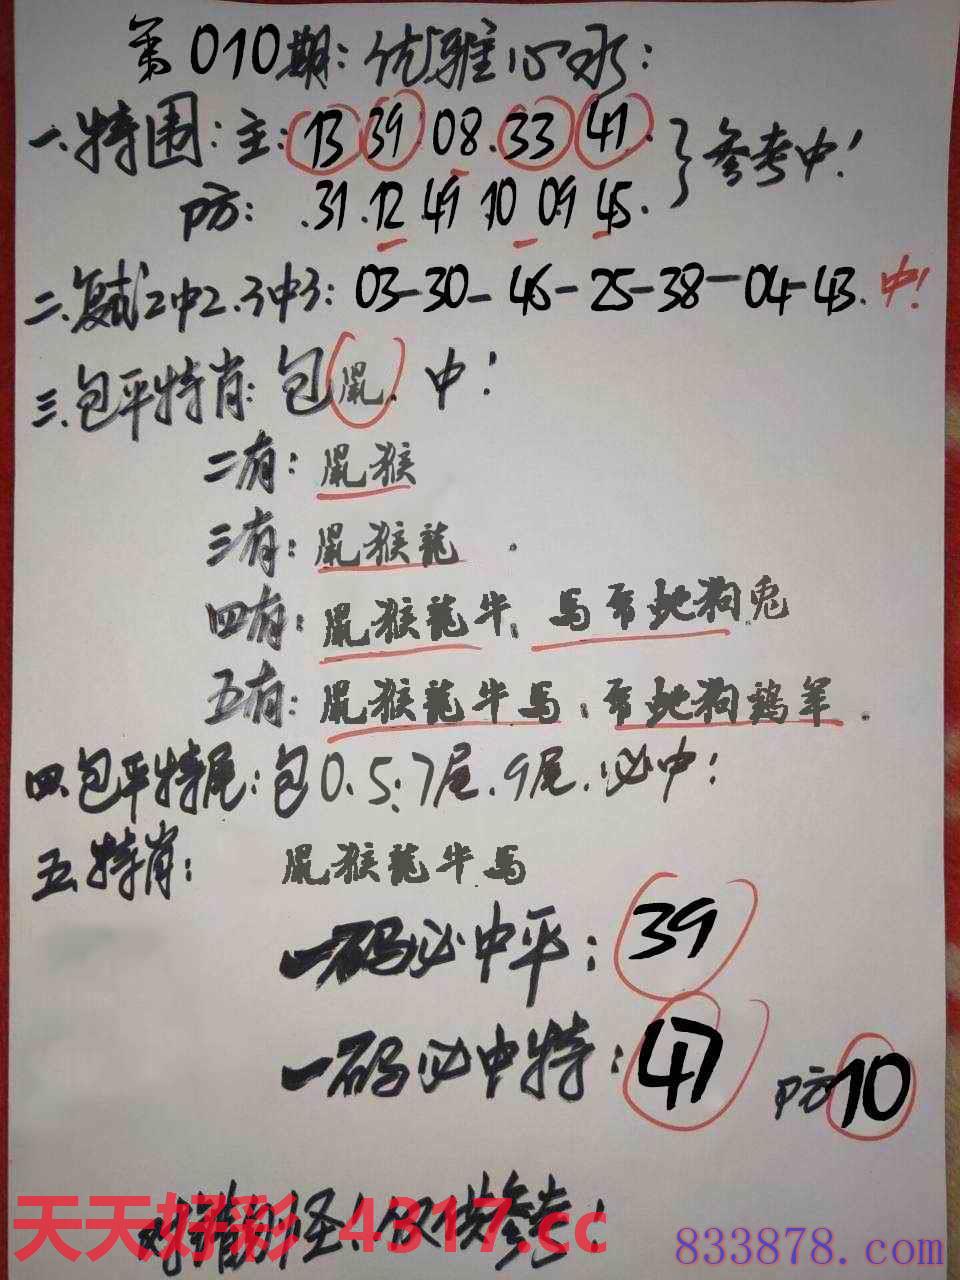 第010期:优雅心水:
一.特围:主:13 39 08.33 47.}参考中!
防:.31.12 49 10 09 45.
二.复试2中2.3中3:03-30-46-25-38-04-43.中!
三.包平特肖:包鼠.中!
二有:鼠猴
三有:鼠猴龍.
四有:鼠猴龍牛.馬 蛇狗兔
五有:鼠猴龍牛馬: 蛇狗鷄羊.
四.包平特尾:包0.5.7尾.9尾.必中!
五.特肖: 鼠猴龍牛馬
一码必中平:39
一码必中特:47 防10
对错勿怪!仅供参考!
天天好彩 4317.cc
833878.com